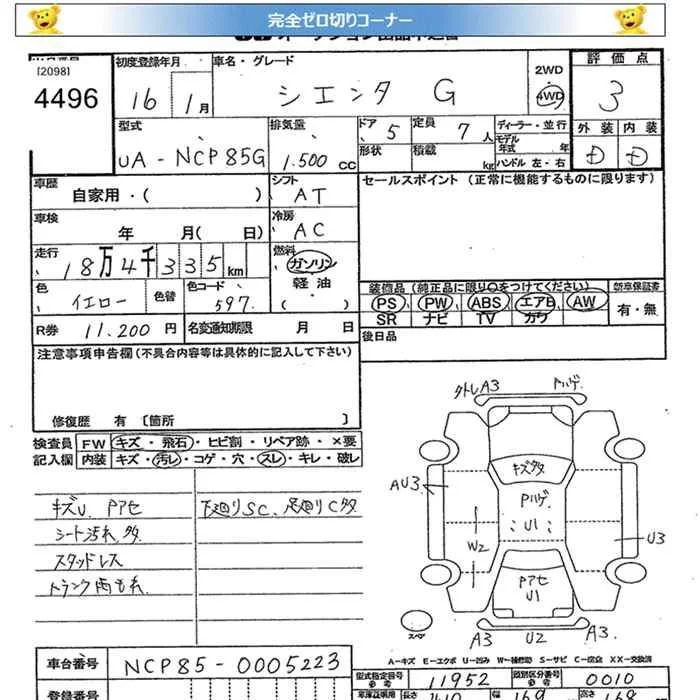 完全ゼロ切りコーナー
[2098]
4496
初度登録年月
16 1月
車名・グレード
シエンタ G
2WD
4WD
評価点
3
外装 内装
D D
型式
UA-NCP85G
排気量
1.500 CC
ドア 5
形状
定員 7 人
積載 kg
ディーラー・並行
モデル
年式 年
ハンドル 左・右
車歴
自家用・( )
シフト
AT
セールスポイント (正常に機能するものに限ります)
車検
年 月( 日)
冷房
AC
走行
18万4千335km
燃料
ガソリン
軽油
( )
色
イエロー
色替
色コード
597
装備品 (純正品に限り○をつけてください)
新車保証書
PS PW ABS エアB AW
SR ナビ TV カワ
有・無
R券 11.200 円
名変通知期限 月 日
後日品
注意事項申告欄 (不具合内容等は具体的に記入して下さい)
修復歴 有 〔箇所 〕
検査員
記入欄
FW キズ・飛石・ヒビ割・リペア跡・×要
内装 キズ・汚レ・コゲ・穴・スレ・キレ・破レ
キズU. Pアセ
下廻りSC、足廻りC多
シート汚れ多
スタッドレス
トランク雨もれ
タトレA3
Pハゲ
キズ多
AU3
Pハゲ
U1
W2
U3
Pアセ
U1
スペア
A3 U2 A3.
A-キズ E-エクボ U-凹み W-補修跡 S-サビ C-腐食 XX-交換済
車台番号
NCP85-0005223
型式指定番号
参考
11952
類別区分番号
参考
0010
登録番号
長さ
幅
169
高さ
168